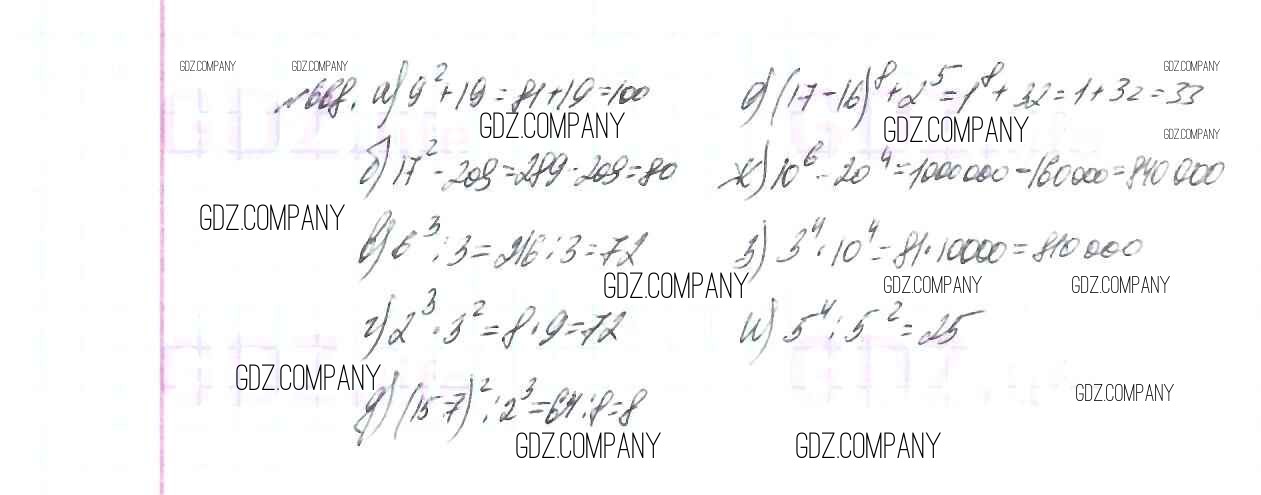 GDZ.COMPANY GDZ.COMPANY GDZ.COMPANY
№668. а) 9² + 19 = 81 + 19 = 100
е) (17 - 16)⁸ + 2⁵ = 1⁸ + 32 = 1 + 32 = 33
GDZ.COMPANY GDZ.COMPANY GDZ.COMPANY
б) 17² - 209 = 289 - 209 = 80
ж) 10⁶ - 20⁴ = 1000000 - 160000 = 840 000
GDZ.COMPANY
в) 6³ : 3 = 216 : 3 = 72
з) 3⁴ · 10⁴ = 81 · 10000 = 810 000
GDZ.COMPANY GDZ.COMPANY GDZ.COMPANY
г) 2³ · 3² = 8 · 9 = 72
и) 5⁴ : 5² = 25
GDZ.COMPANY GDZ.COMPANY
д) (15 - 7)² : 2³ = 64 : 8 = 8
GDZ.COMPANY GDZ.COMPANY